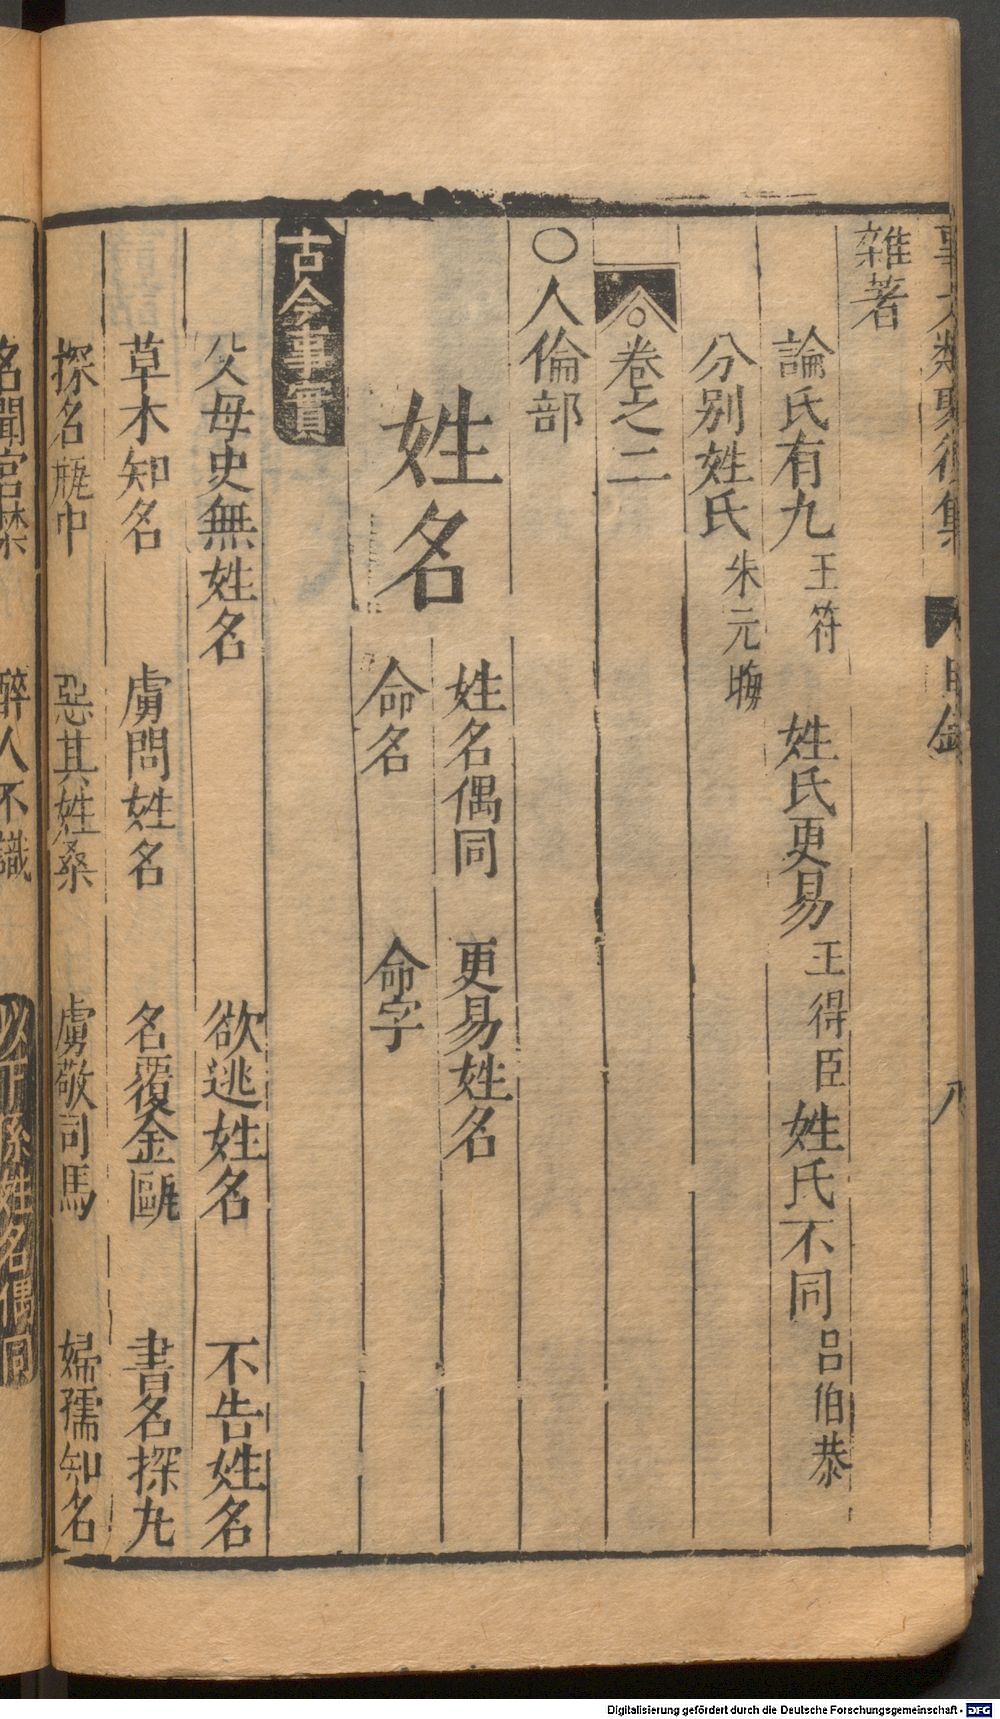 事文類聚後集 目錄 八
雜著
論氏有九 王符 姓氏更易 王得臣 姓氏不同 吕伯恭
分别姓氏 朱元晦
○卷之二
○人倫部
姓名偶同 更易姓名
姓名
命名 命字
古今事實
父母史無姓名 欲逃姓名 不告姓名
草木知名 虜問姓名 名覆金甌 書名探丸
探名瓶中 惡其姓桑 虜敬司馬 婦孺知名
名聞宮禁 醉人不識 以下係姓名偶同
Digitalisierung gefördert durch die Deutsche Forschungsgemeinschaft - DFG